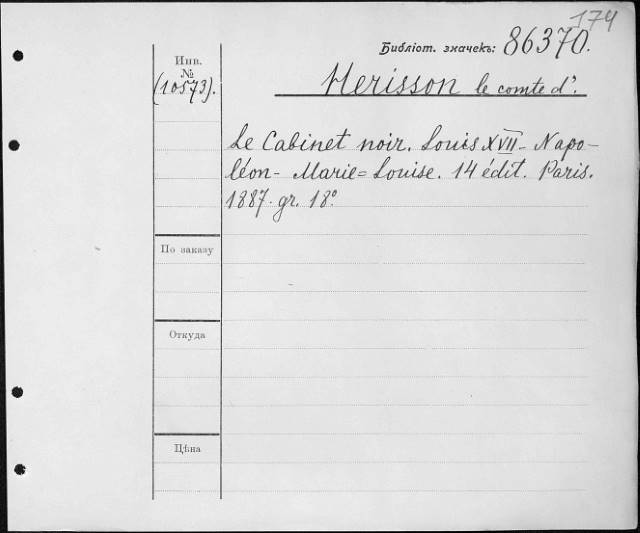 174
Библіот. значекъ: 86370.
Инв.
№
(10573).
Herisson le comte d'.
Le Cabinet noir. Louis XVII - Napo-
léon - Marie=Louise. 14 édit. Paris.
1887. gr. 18°
По заказу
Откуда
Цѣна